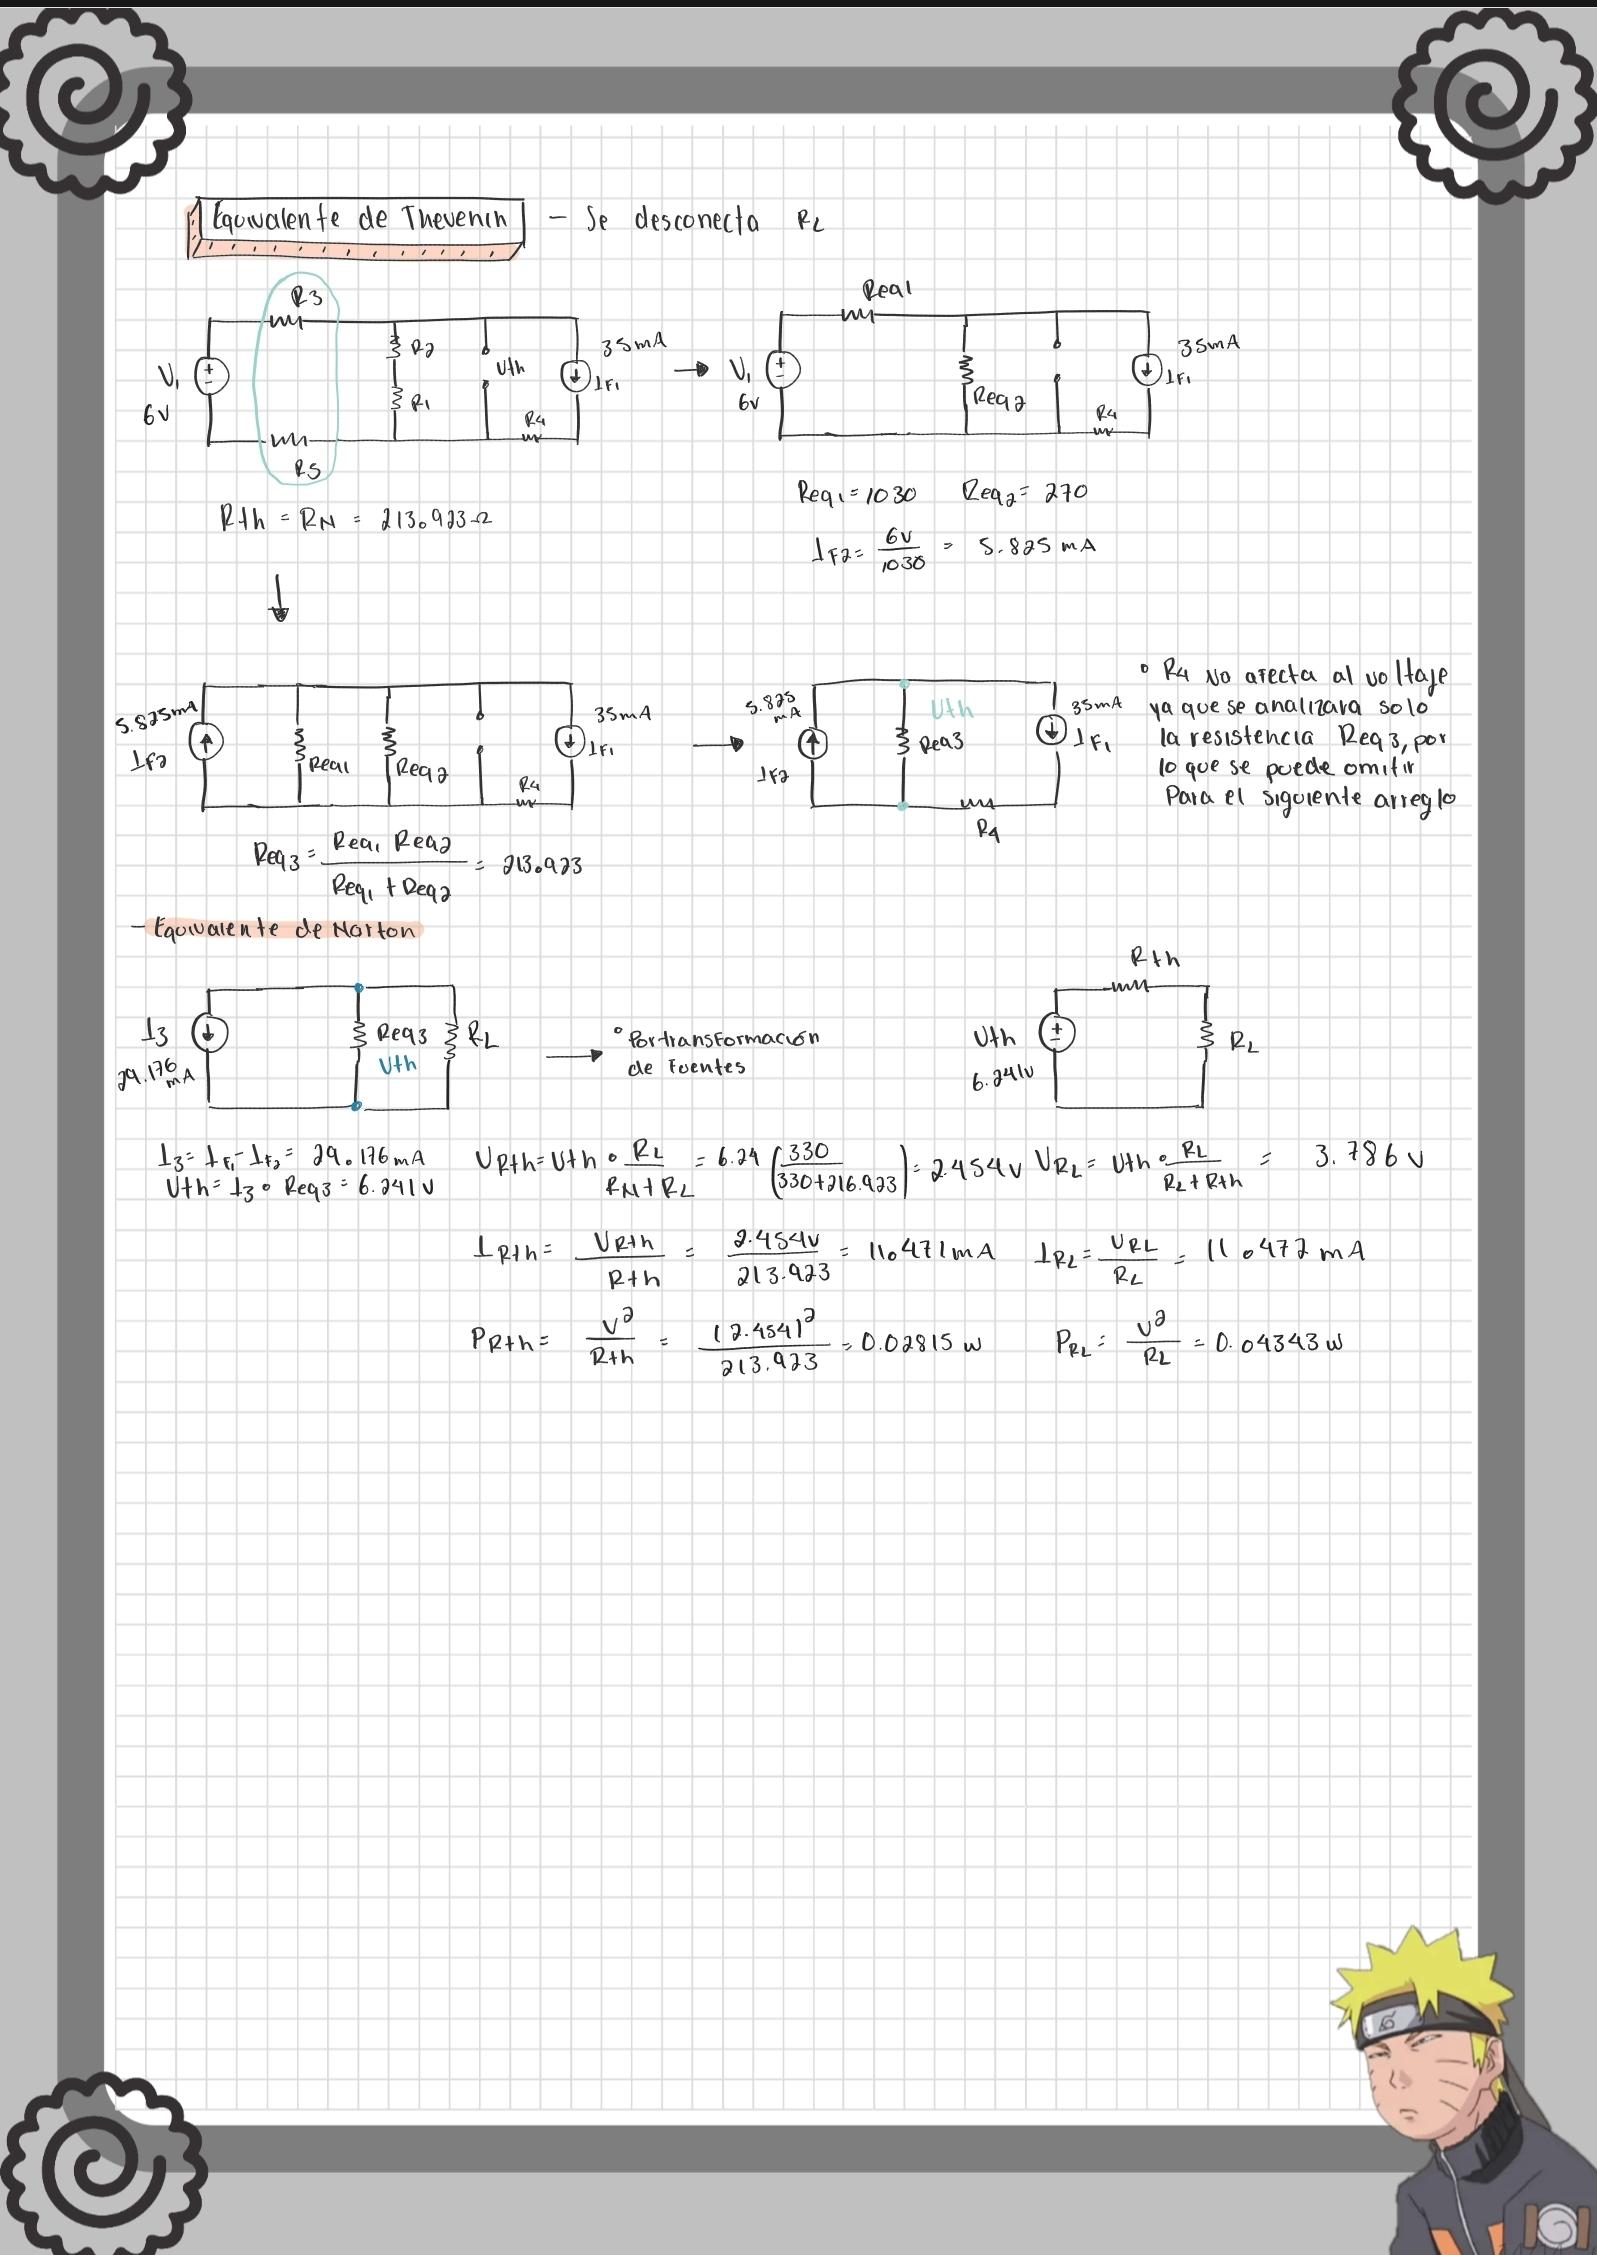 Equivalente de Thevenin - Se desconecta RL
R3
R2
R1
Vth
35mA
IF1
V1
6V
R4
R5
Req1
V1
6V
Req2
35mA
IF1
R4
Rth = RN = 213.923Ω
Req1 = 1030 Req2 = 270
IF2 = 6V/1030 = 5.825 mA
5.825mA
IF2
Req1
Req2
35mA
IF1
R4
5.825 mA
IF2
Vth
Req3
35mA
IF1
R4
° R4 No afecta al voltaje
ya que se analizara solo
la resistencia Req3, por
lo que se puede omitir
Para el siguiente arreglo
Req3 = Req1 Req2 / Req1 + Req2 = 213.923
- Equivalente de Norton
I3
29.176 mA
Req3
Vth
RL
° Por transformación
de fuentes
Rth
Vth
6.241V
RL
I3 = IF1 - IF2 = 29.176mA
Vth = I3 ∘ Req3 = 6.241V
VRth = Vth ∘ RL / RN + RL = 6.24 (330 / 330+216.923) = 2.454V
VRL = Vth ∘ RL / RL + Rth = 3.786 V
IRth = VRth / Rth = 2.454V / 213.923 = 11.471mA
IRL = VRL / RL = 11.472 mA
PRth = V² / Rth = (2.454)² / 213.923 = 0.02815 W
PRL = V² / RL = 0.04343 W